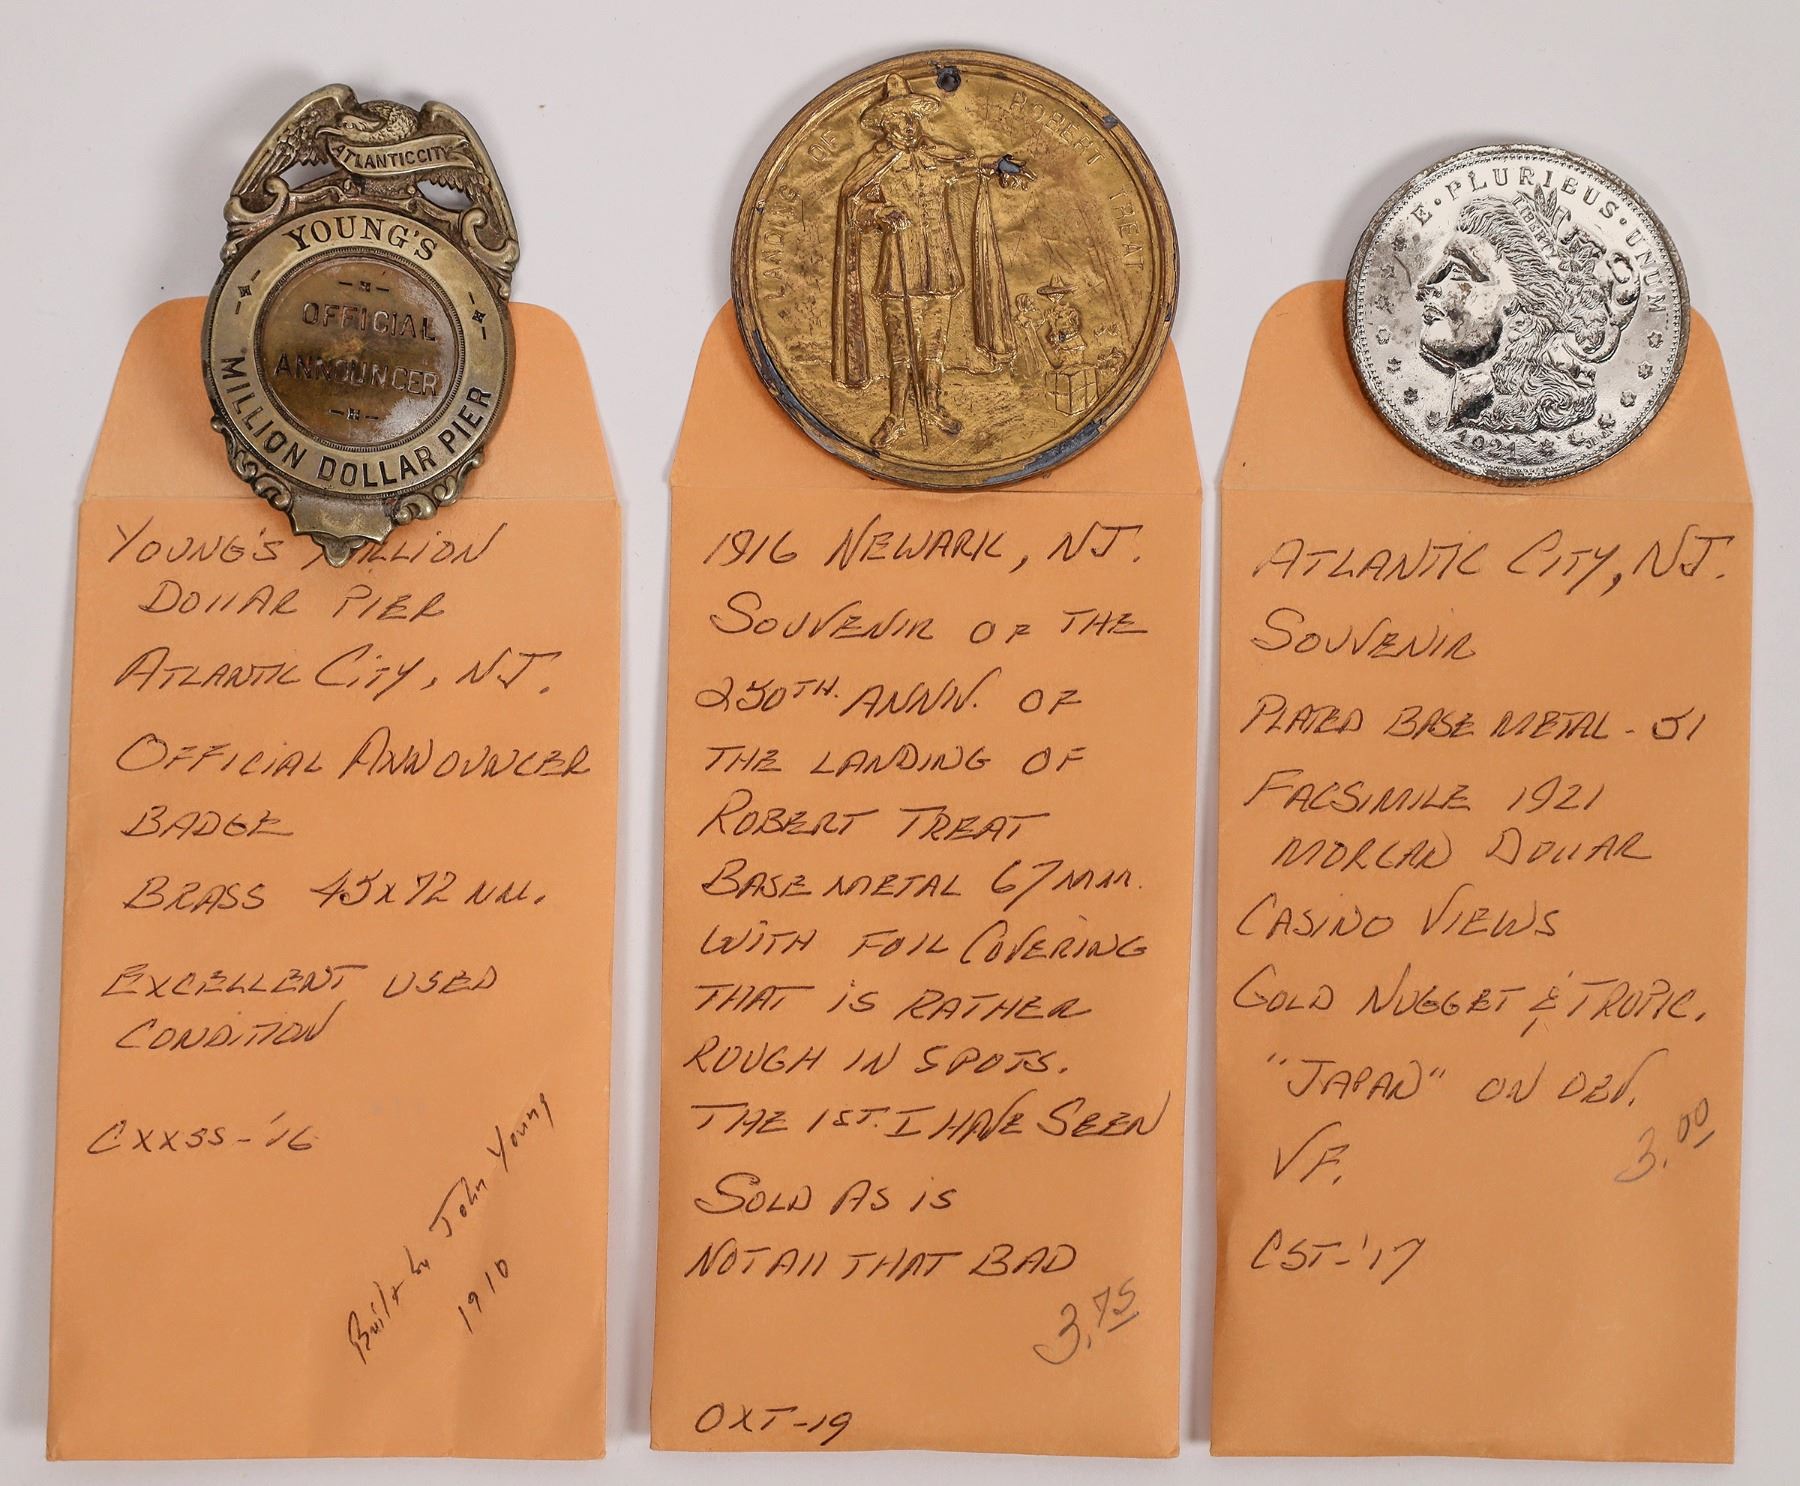 ATLANTIC CITY
YOUNG'S
OFFICIAL
ANNOUNCER
MILLION DOLLAR PIER
YOUNG'S MILLION
DOLLAR PIER
ATLANTIC CITY, NJ.
OFFICIAL ANNOUNCER
BADGE
BRASS 45X72 MM.
EXCELLENT USED
CONDITION
CXXSS-'16
Built by John Young
1910
LANDING OF ROBERT TREAT
1916 NEWARK, NJ.
SOUVENIR OF THE
250TH. ANNV. OF
THE LANDING OF
ROBERT TREAT
BASE METAL 67MM.
WITH FOIL COVERING
THAT IS RATHER
ROUGH IN SPOTS.
THE 1ST. I HAVE SEEN
SOLD AS IS
NOT ALL THAT BAD
3.75
OXT-19
E·PLURIBUS·UNUM
LIBERTY
1921
ATLANTIC CITY, NJ.
SOUVENIR
PLATED BASE METAL - 51
FACSIMILE 1921
MORGAN DOLLAR
CASINO VIEWS
GOLD NUGGET & TROPIC.
"JAPAN" ON
VF.
3.00
CST-'17